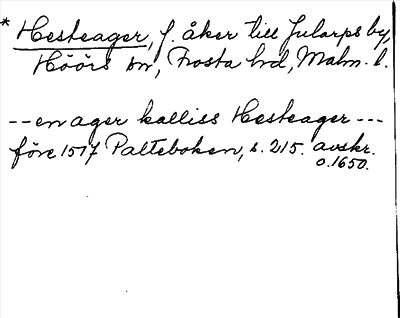 * Hesteager, f. åker till Jularps by,
Höörs sn, Frosta hd, Malm. l.
-- en ager kalliss Hesteager ---
före 1517 Palteboken, s. 215. avskr.
o. 1650.